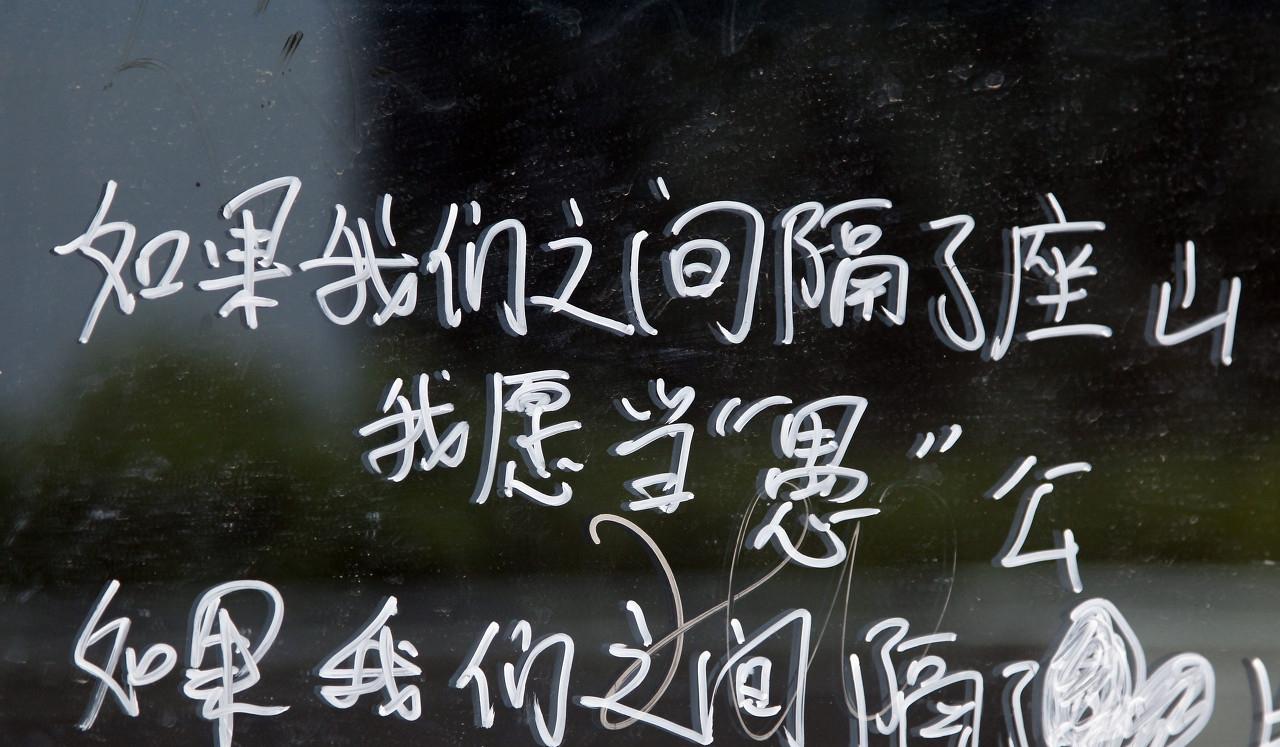 如果我们之间隔了座山
我愿当“愚”公
如果我们之间隔了